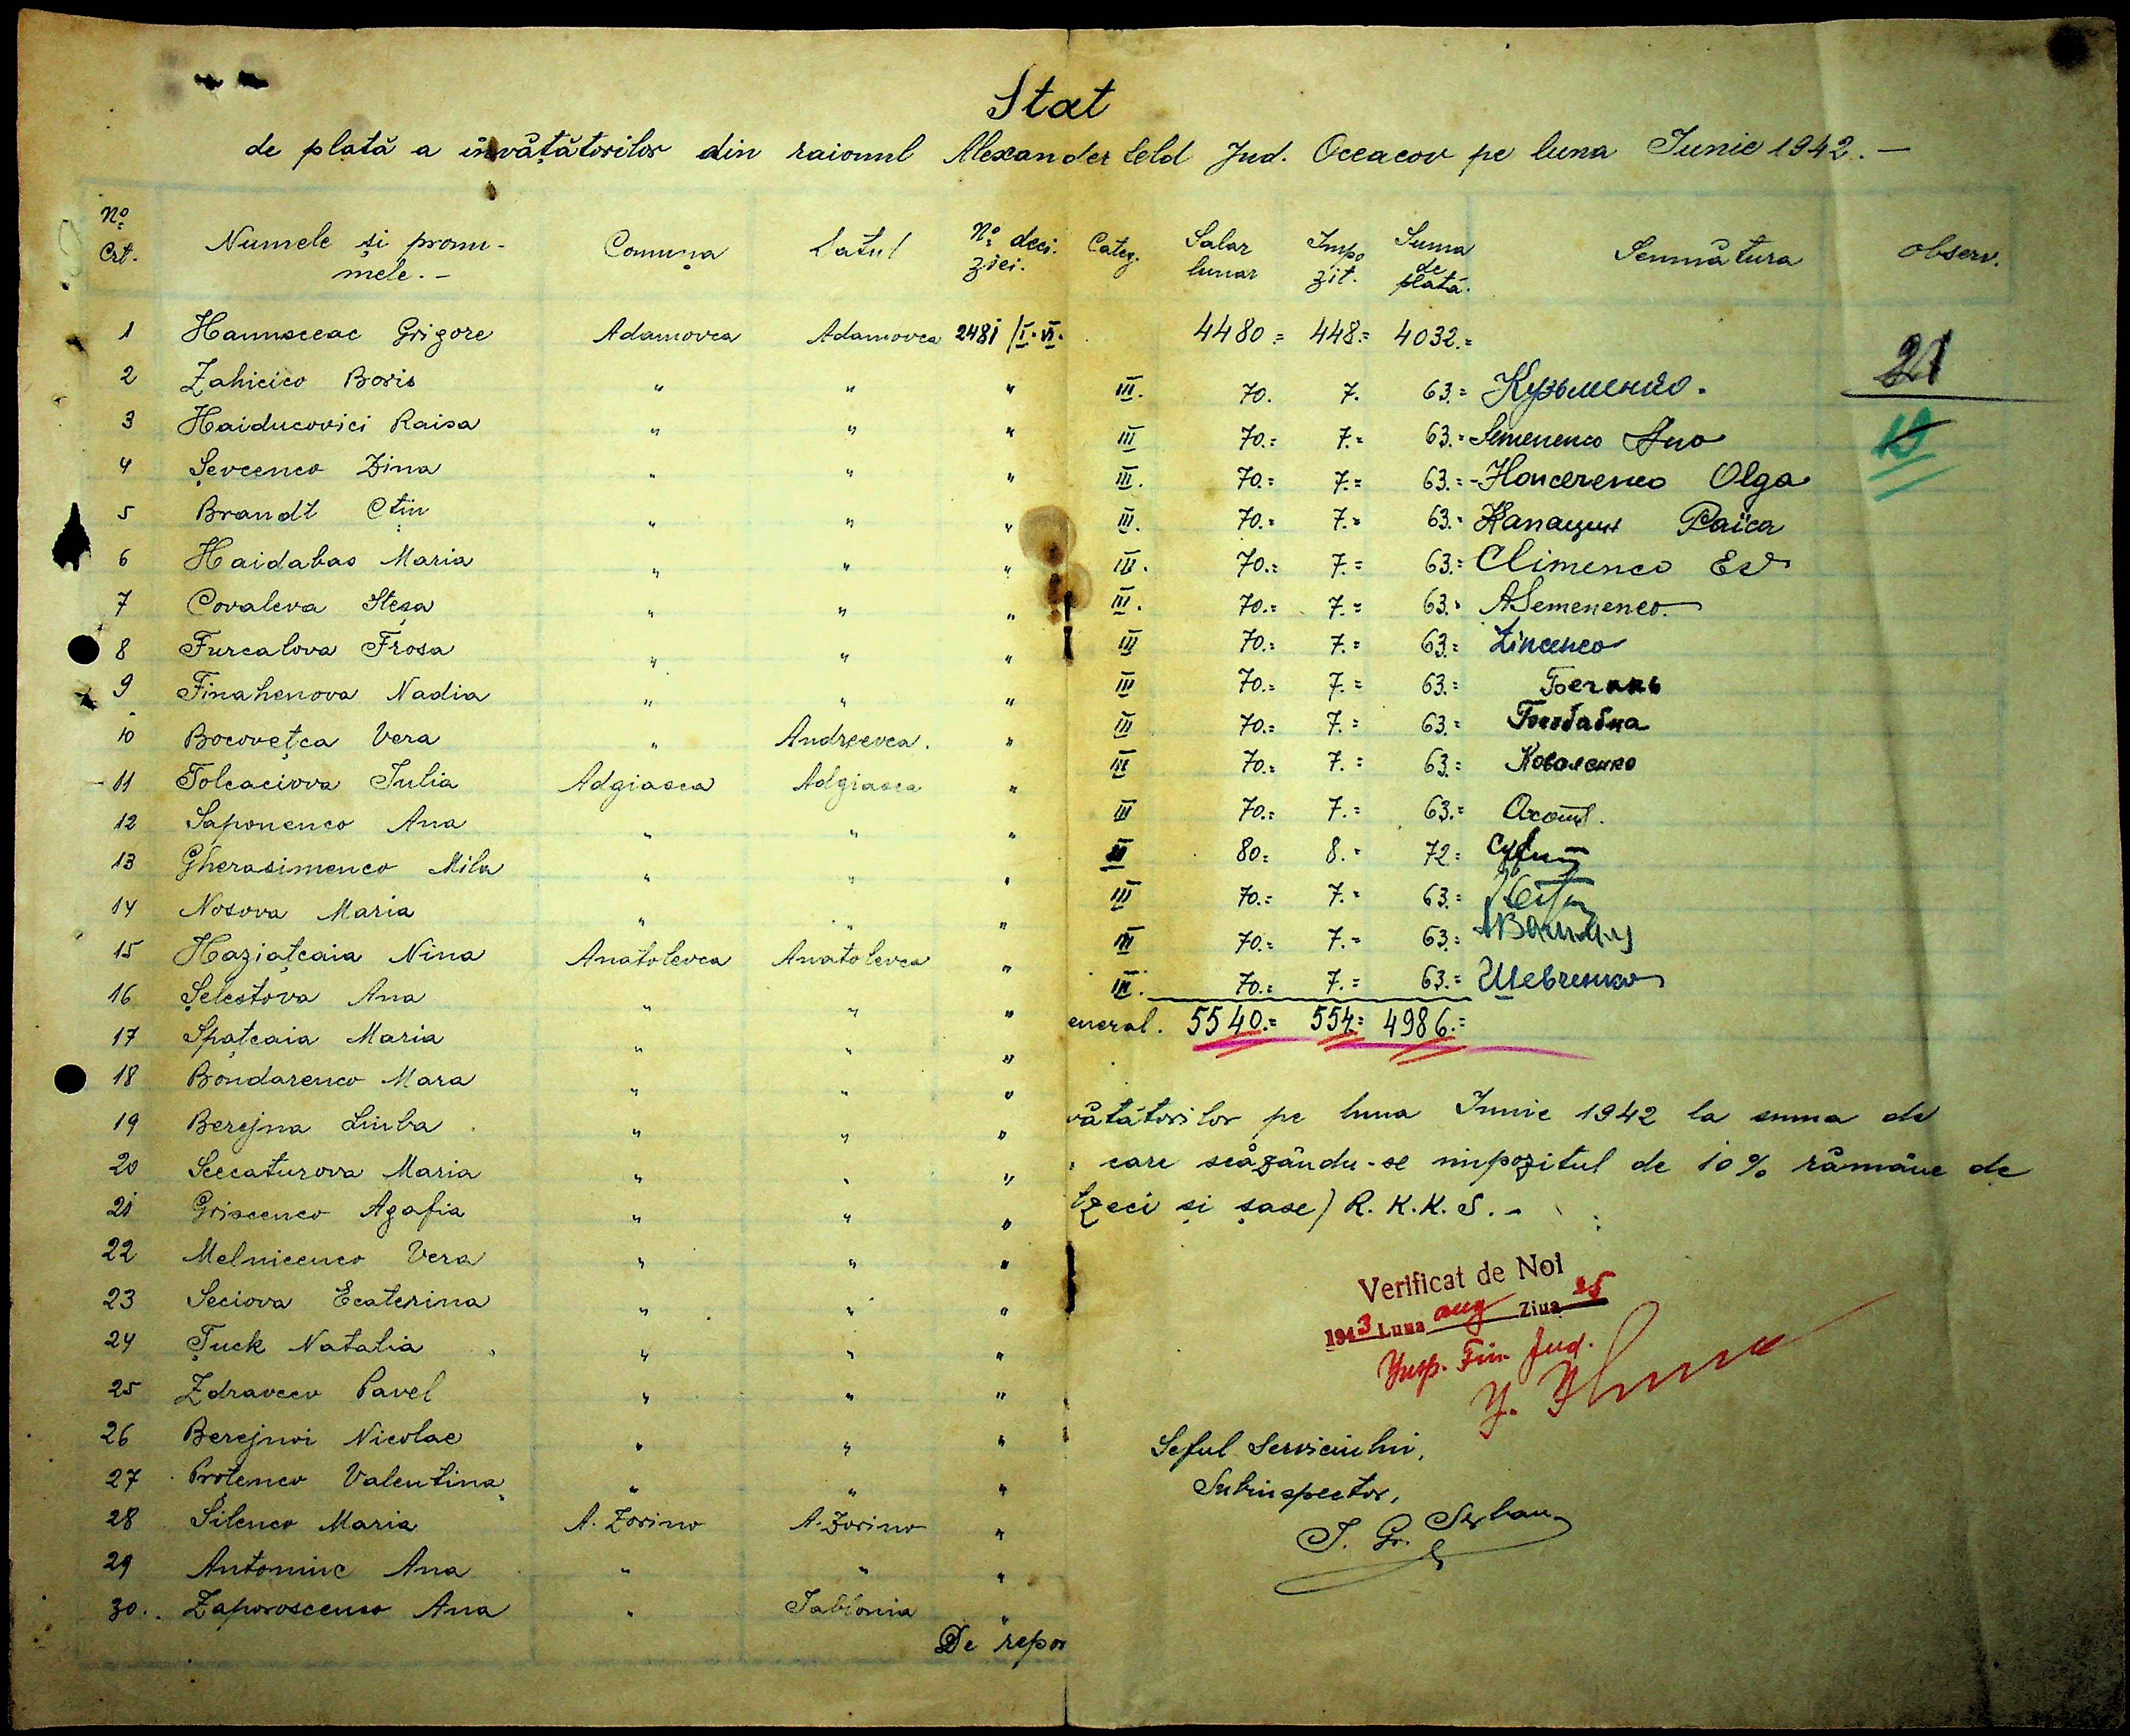 Stat
de plată a învățătorilor din raionul Alexanderfeld Jud. Oceacov pe luna Iunie 1942. —
No Crt. Numele și pronumele. — Comuna Satul No. deciziei. Categ. Salar lunar Impozit. Suma de plată. Semnătura Observ.
4480.= 448.= 4032.=
1 Adamovca Adamovca 2481/I·VI·
21
2 Boris " " " III. 70. 7. 63.= Кузьменко.
3 Haiducovici Raisa " " " III 70.= 7.= 63.= Semenenco
19
4 Șevcenco Zina " " " III. 70.= 7.= 63.= Honcerenco Olga
5 Brandt Ctin " " " III. 70.= 7.= 63.= Раїса
6 Haidabas Maria " " " III. 70.= 7.= 63.= Climenco Ev
7 Covaleva Steșa " " " III. 70.= 7.= 63.= A Semenenco
8 Furcalova Frosa " " " III 70.= 7.= 63.= Zincenco
9 Finahenova Nadia " " " III 70.= 7.= 63.=
10 Bocovețca Vera " Andreevca. " III 70.= 7.= 63.=
11 Tolcaciova Iulia Adgiasca Adgiasca " III 70.= 7.= 63.= Коваленко
12 Saponenco Ana " " " III 70.= 7.= 63.=
13 Gherasimenco Mila " " " II 80.= 8.= 72.=
14 Nosova Maria " " " III 70.= 7.= 63.=
15 Haziațcaia Nina Anatolevca Anatolevca " III 70.= 7.= 63.=
16 Șelestova Ana " " " III. 70.= 7.= 63.= Шевченко
eneral. 5540.= 554.= 4986.=
17 Spațcaia Maria " " "
18 Bondarenco Mara " " "
19 Berejna Liuba " " "
20 Maria " " "
21 Griscenco Agafia " " "
22 Melnicenco Vera " " "
23 Seciova Ecaterina " " "
24 Țuck Natalia " " "
25 Pavel " " "
26 Berejnoi Nicolae " " "
27 Protenco Valentina " " "
28 Silenco Maria A. Zorino A. Zorino "
29 Antoniuc Ana " " "
30. Zaporoscenco Ana " Iablonia "
De repor
vătătorilor pe luna Iunie 1942 la suma de
care scăzându-se impozitul de 10% rămâne de
tzeci și șase) R.K.K.S. —
Verificat de Noi
1943 Luna aug Ziua 25
Insp. Fin. Jud.
Șeful Serviciului,
Subinspector,
I. Gr. Șerban